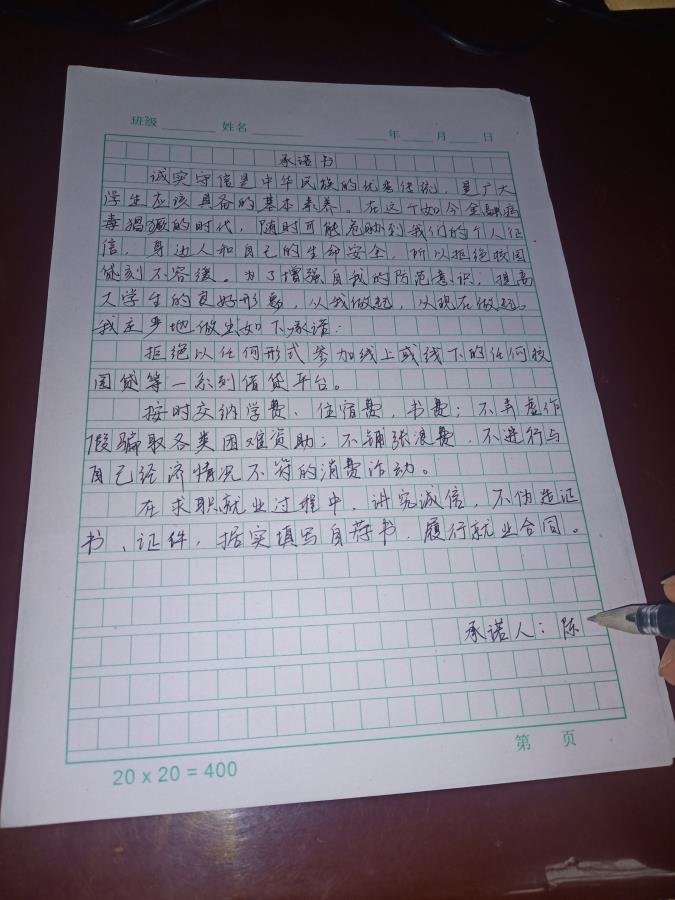 班级 姓名 年 月 日
承诺书
诚实守信是中华民族的优秀传统，是广大
学生应该具备的基本素养。在这个如今金融病
毒猖獗的时代，随时可能危胁到我们的个人征
信，身边人和自己的生命安全，所以拒绝校园
贷刻不容缓。为了增强自我的防范意识；提高
大学生的良好形象，从我做起，从现在做起。
我庄严地做出如下承诺：
拒绝以任何形式参加线上或线下的任何校
园贷等一系列借贷平台。
按时交纳学费、住宿费，书费；不弄虚作
假骗取各类困难资助；不铺张浪费，不进行与
自己经济情况不符的消费活动。
在求职就业过程中，讲究诚信，不伪造证
书、证件，据实填写自荐书，履行就业合同。
承诺人：陈
第 页
20 x 20 = 400